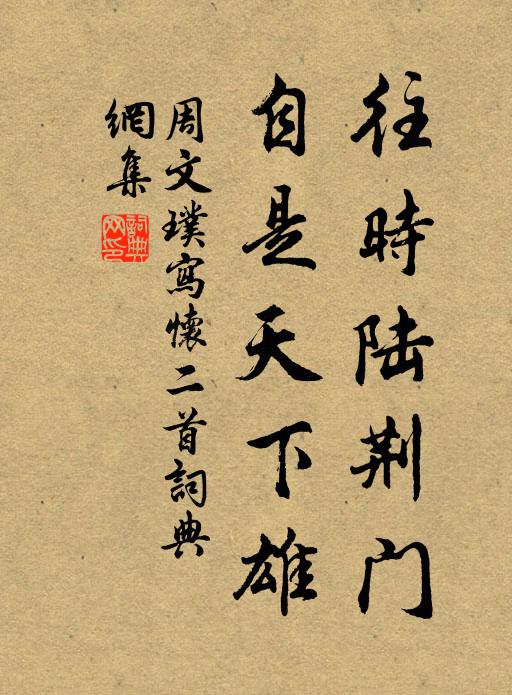 往時陆荆门
自是天下雄
周文璞寫懷二首詞典
網集
詞典网印